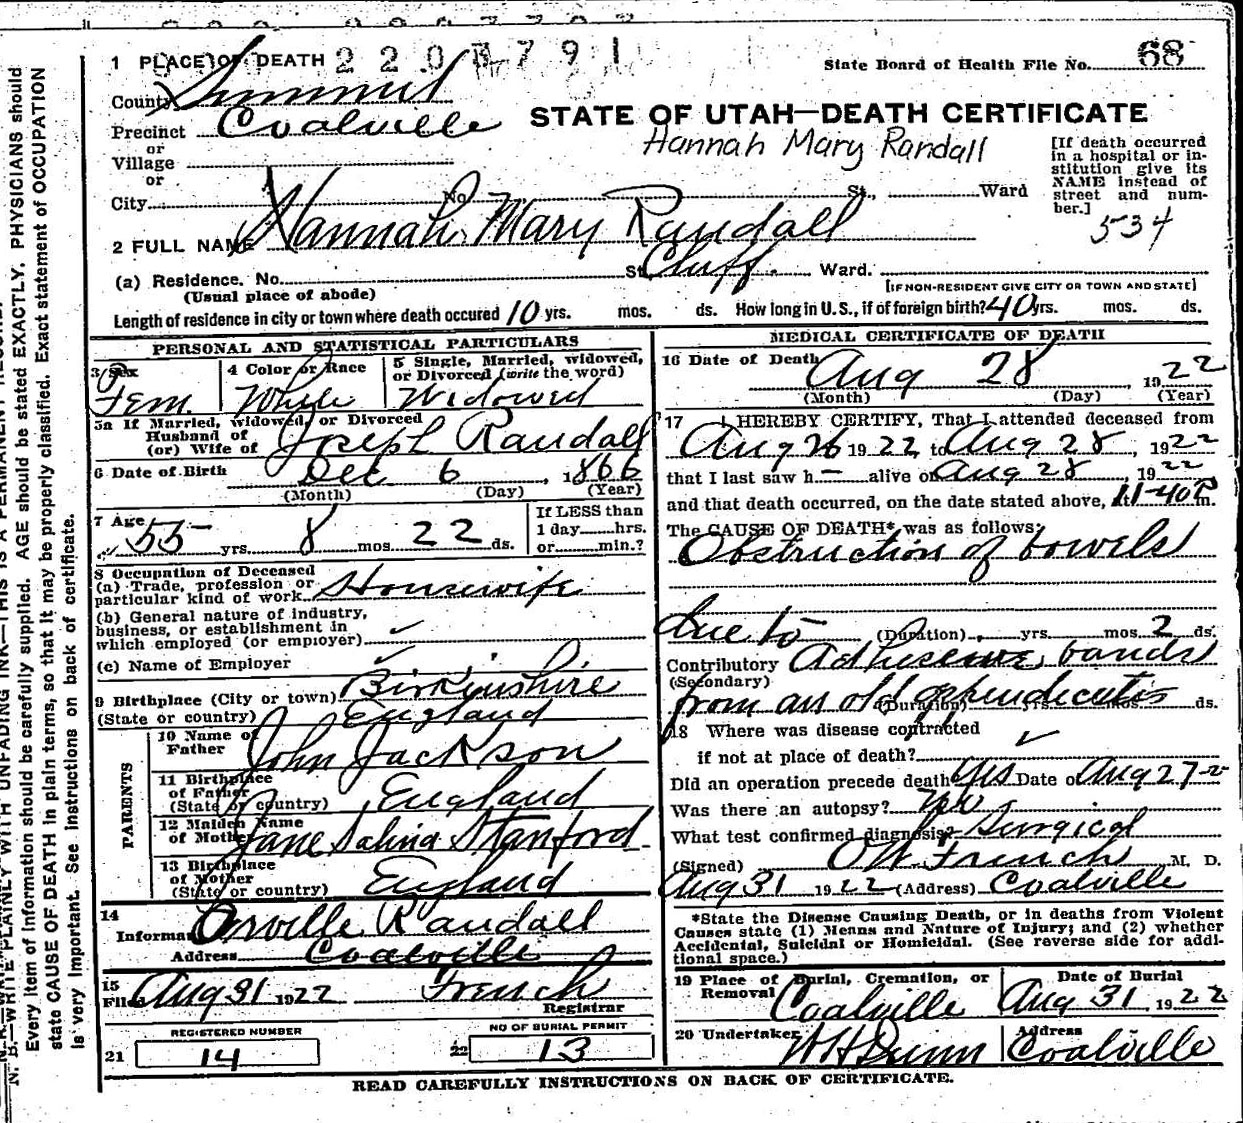 2203791
1 PLACE OF DEATH
State Board of Health File No. 68
County Summit
STATE OF UTAH—DEATH CERTIFICATE
Precinct Coalville
or
Village
or
Hannah Mary Randall
[If death occurred in a hospital or institution give its NAME instead of street and number.]
City No. St., Ward
534
2 FULL NAME Hannah Mary Randall
(a) Residence. No. St. Cluff. Ward.
(Usual place of abode)
[IF NON-RESIDENT GIVE CITY OR TOWN AND STATE]
Length of residence in city or town where death occured 10 yrs. mos. ds. How long in U.S., if of foreign birth? 40 yrs. mos. ds.
PERSONAL AND STATISTICAL PARTICULARS
3 Sex
Fem.
4 Color or Race
White
5 Single, Married, widowed, or Divorced (write the word)
Widowed
5a If Married, widowed, or Divorced
Husband of
(or) Wife of Joseph Randall
6 Date of Birth Dec 6, 1866
(Month) (Day) (Year)
7 Age 55 yrs. 8 mos. 22 ds.
If LESS than
1 day hrs.
or min.?
8 Occupation of Deceased
(a) Trade, profession or
particular kind of work Housewife
(b) General nature of industry,
business, or establishment in
which employed (or employer) ✓
(c) Name of Employer ✓
9 Birthplace (City or town) Birkinshire
(State or country) England
PARENTS
10 Name of
Father John Jackson
11 Birthplace
of Father
(State or country) England
12 Maiden Name
of Mother Jane Salina Stanford
13 Birthplace
of Mother
(State or country) England
14
Informant Orville Randall
Address Coalville
15
Filed Aug 31 1922 French
Registrar
REGISTERED NUMBER
21 14
NO OF BURIAL PERMIT
22 13
MEDICAL CERTIFICATE OF DEATH
16 Date of Death Aug 28, 1922
(Month) (Day) (Year)
17 I HEREBY CERTIFY, That I attended deceased from
Aug 26 1922 to Aug 28, 1922
that I last saw h— alive on Aug 28 1922
and that death occurred, on the date stated above, at 11-40 P m.
The CAUSE OF DEATH* was as follows:
Obstruction of bowels
due to (Duration) yrs. mos. 2 ds.
Contributory Adhesive bands
(Secondary)
from an old appendicitis (Duration) yrs. mos. ds.
18 Where was disease contracted
if not at place of death? ✓
Did an operation precede death Yes Date of Aug 27-22
Was there an autopsy? No
What test confirmed diagnosis? Surgical
(Signed) French M. D.
Aug 31 1922 (Address) Coalville
*State the Disease Causing Death, or in deaths from Violent
Causes state (1) Means and Nature of Injury; and (2) whether
Accidental, Suicidal or Homicidal. (See reverse side for additional space.)
19 Place of Burial, Cremation, or
Removal Coalville
Date of Burial
Aug 31 1922
20 Undertaker W H Dunn
Address
Coalville
READ CAREFULLY INSTRUCTIONS ON BACK OF CERTIFICATE.
N. B.—WRITE PLAINLY WITH UNFADING INK—THIS IS A PERMANENT RECORD.
Every item of information should be carefully supplied. AGE should be stated EXACTLY. PHYSICIANS should
state CAUSE OF DEATH in plain terms, so that it may be properly classified. Exact statement of OCCUPATION
is very important. See instructions on back of certificate.